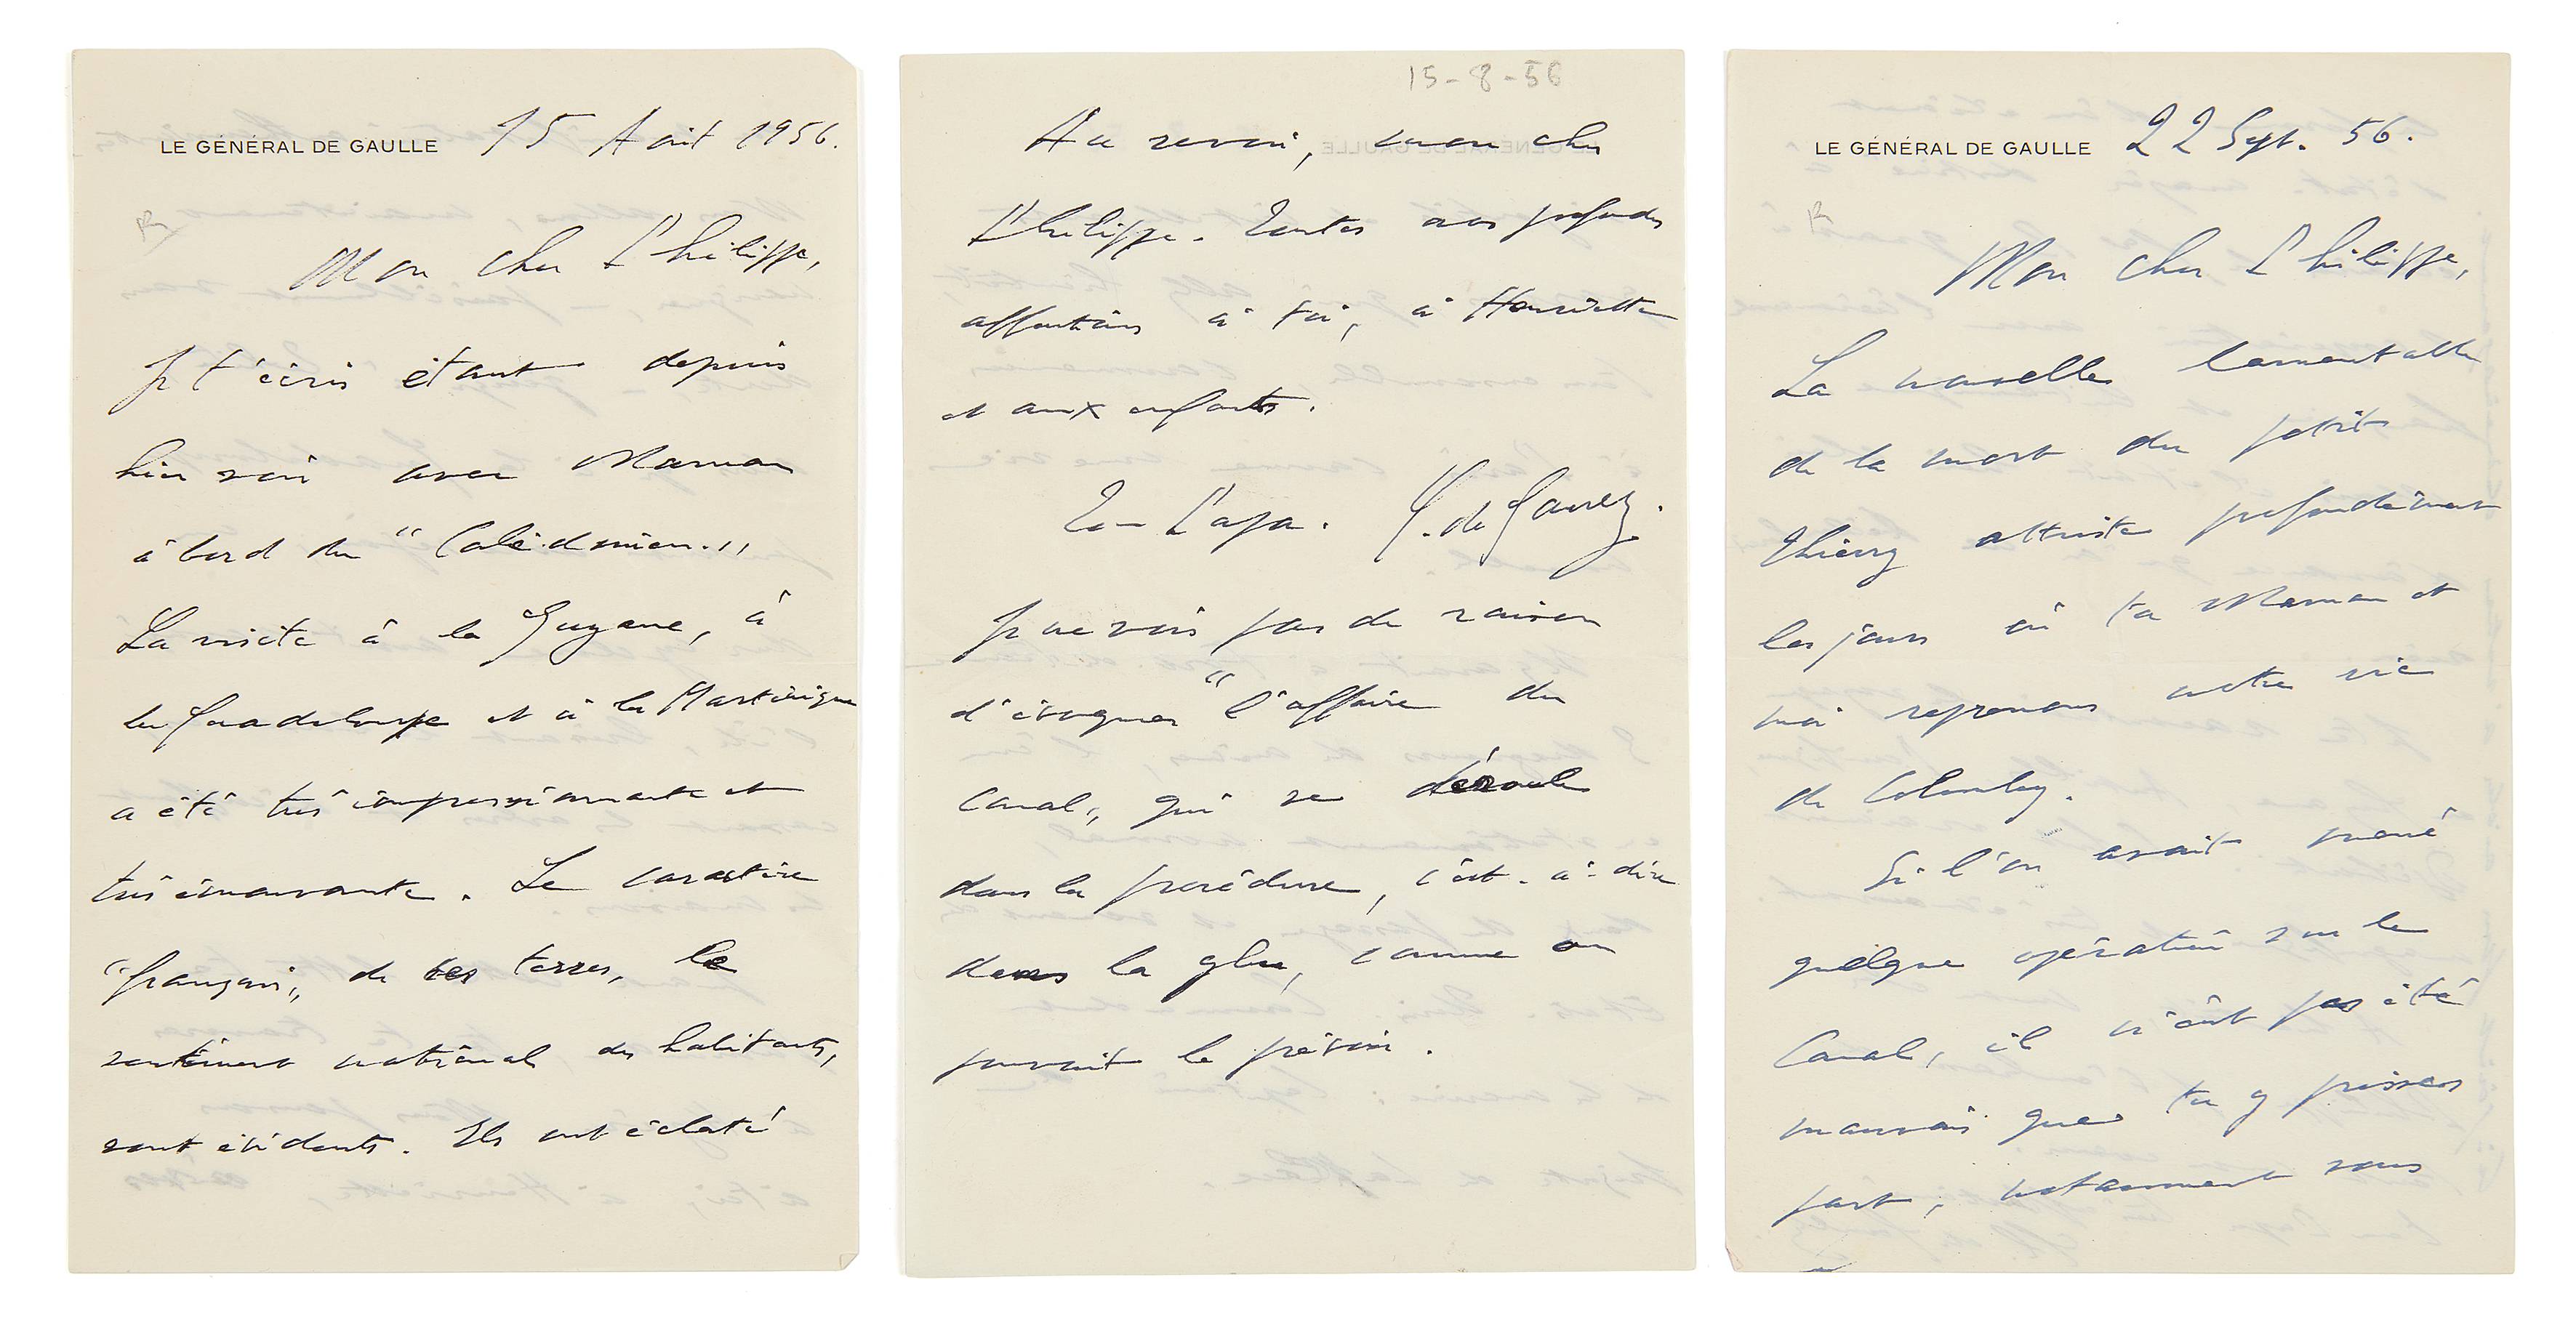 LE GÉNÉRAL DE GAULLE 15 Août 1956.
Mon cher Philippe,
Je t'écris étant depuis
hier soir avec Maman
à bord du "Calédonien".
La visite à la Guyane, à
la Guadeloupe et à la Martinique
a été très impressionnante et
très émouvante. Le caractère
"français" de ces terres, le
sentiment national des habitants,
sont évidents. Ils ont éclaté
15-8-56
Au revoir, mon cher
Philippe. Toutes nos profondes
affections à toi, à Henriette
et aux enfants.
Ton Papa. C. de Gaulle.
Je ne vois pas de raison
d'évoquer "l'affaire du
Canal", qui se déroule
dans la procédure, c'est-à-dire
dans la glu, comme on
pouvait le prévoir.
LE GÉNÉRAL DE GAULLE 22 Sept. 56.
Mon cher Philippe,
La nouvelle lamentable
de la mort du petit
Thierry attriste profondément
les jours où ta Maman et
moi reprenons notre vie
de Colombey.
Si l'on avait mené
quelque opération sur le
Canal, il n'eût pas été
mauvais que tu y prisses
part, notamment sous